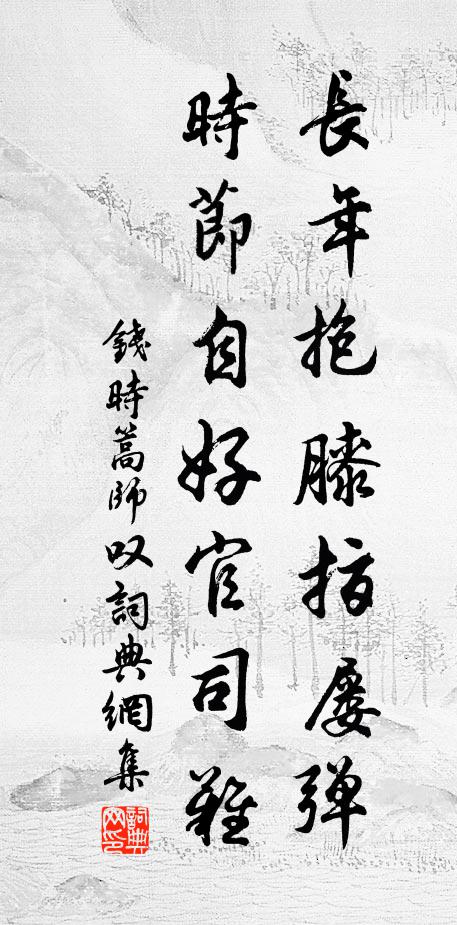 長年抱膝指屢彈
時節自好官司難
錢時篙師叹詞典網集
詞典网印